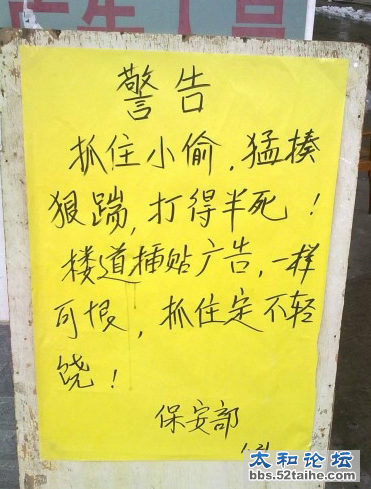 警告
抓住小偷，猛揍
狠踹，打得半死！
楼道插贴广告，一样
可恨，抓住定不轻
饶！
保安部
1.21
太和论坛
bbs.52taihe.com